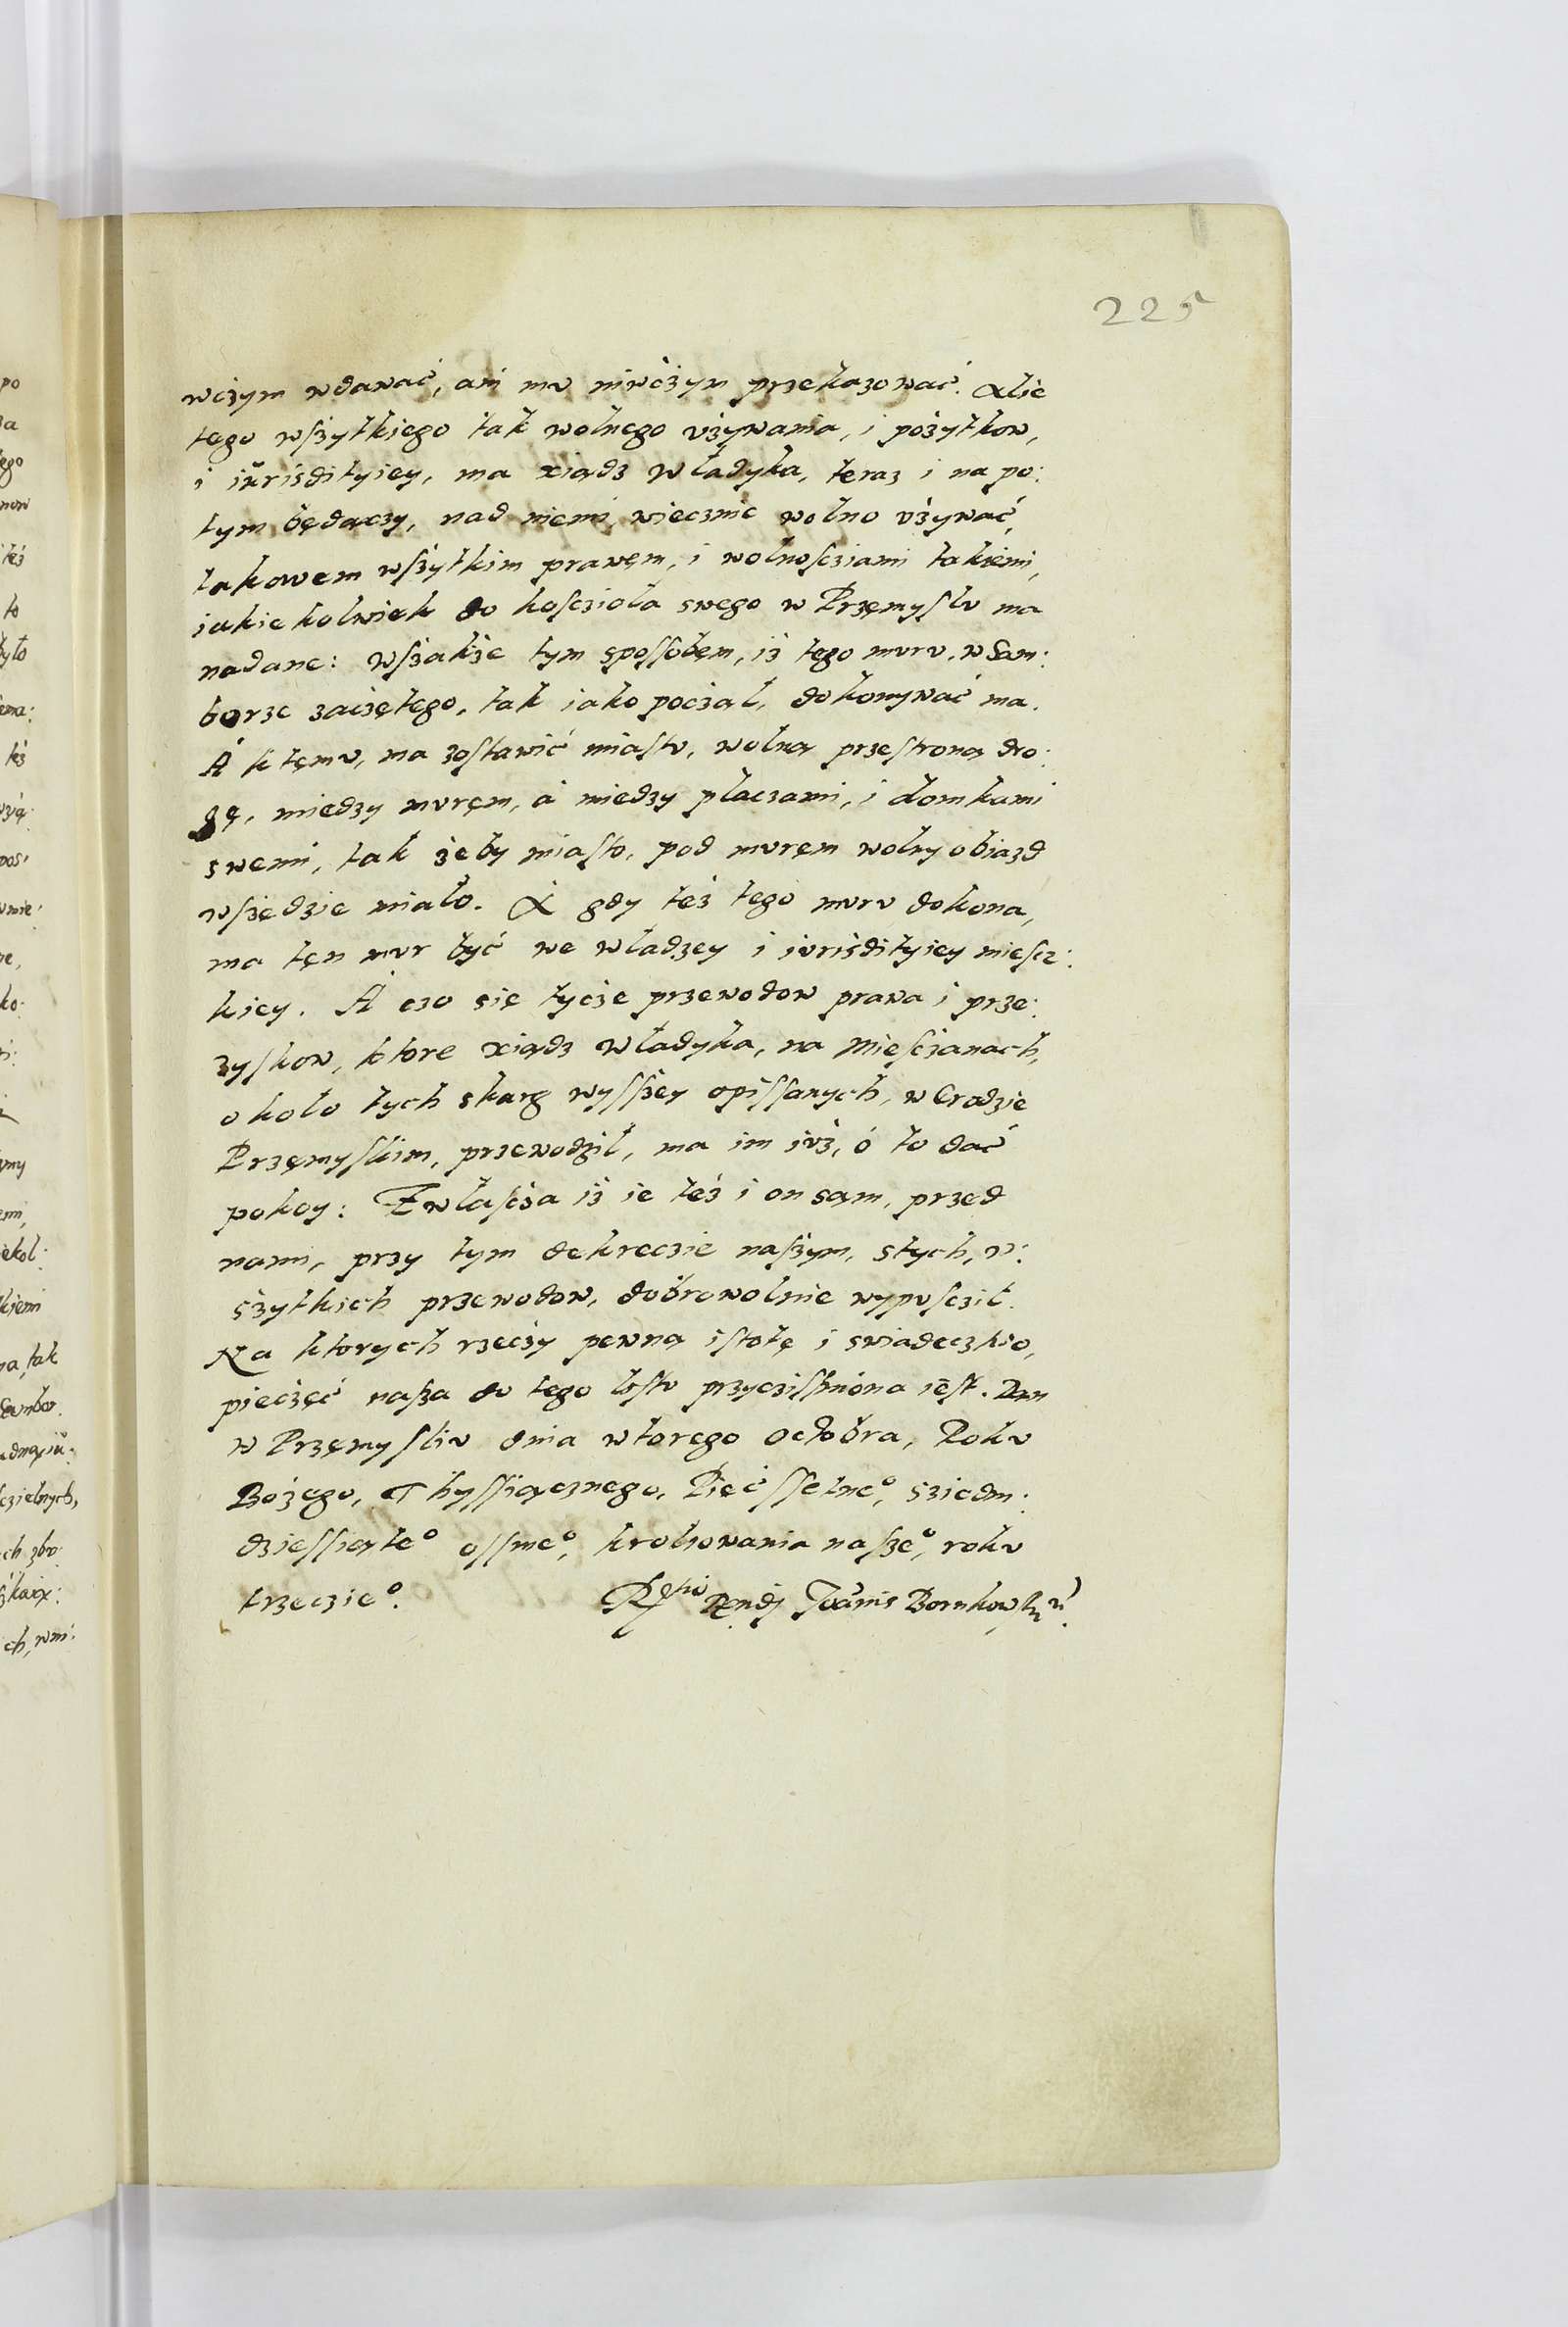 225
wczym wdawać, ani mu niwczym przekazować. Alie
tego wszytkiego tak wolnego vżywania, i pożytkow,
i iurisdityiey, ma xiądz władyka, teraz i na po:
tym będączy, nad niemi wiecznie wolno vżywać,
takowem wszytkim prawęm, i wolnościami takiemi,
iakiekolwiek do kosczioła swego w Przęmyslu ma
nadane: wszakże tym spossobęm, iż tego muru, w Sam:
borze zaczętego, tak iako poczał, dokonywać ma.
A k tęmu, ma zostawić miastu, wolną przestroną dro:
gę, miedzy muręm, á miedzy płaczami, i domkami
swemi, tak żeby miasto, pod muręm wolny obiazd
wszędzie miało. A gdy też tego muru dokona,
ma tęn mur być we władzey i iurisdityiey miescz:
kiey. A czo się tycze przewodow prawa i prze:
zyskow, ktore xiądz władyka, na Miesczanach,
około tych skarg wysszey opissanych, w Grodzie
Przęmyskim, przewodził, ma im iuż, o to dać
pokoy: Zwłascza iż ie też i on sąm, przed
nami, przy tym dekreczie naszym, s tych, w:
szytkich przewodow, dobrowolnie wypusczil.
Na ktorych rzeczy pewną istotę i swiadeczstwo,
pieczęć nasza do tego listu przyczissniona iest. Dan
w Przęmysliu dnia wtorego Octobra, Roku
Bożego, Thyssiącznego, Pięć ssetne°, sziedm:
dziessiąte° ossme°, krolowania nasze°, roku
trzeczie°. Rndj Joānis Bornkowsky
po
za
tego
też
to
było
też
pos:
umie:
ne,
ko:
ekol:
kiemi
na, tak
Sambor.
czielnych,
ch zbo:
ch, wni: